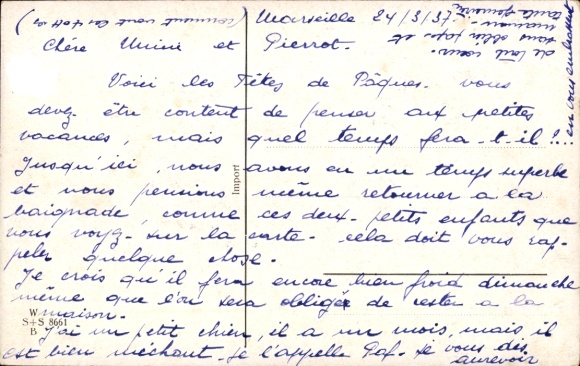 Marseille 24/3/37.
(comment vont les
Chère Mimi et Pierrot.
Voici les Fêtes de Pâques. vous
devez être content de penser aux petites
vacances, mais quel temps fera-t-il!!..
Jusqu'ici, nous avons eu un temps superbe
et nous pensions même retourner a la
baignade, comme ces deux petits enfants que
vous voyez sur la carte. cela doit vous rap-
peler quelque chose.
Je crois qu'il fera encore bien froid dimanche
même que l'on sera obligé de rester a la
maison.
J'ai un petit chien, il a un mois, mais il
est bien méchant. Je l'appelle Paf. Je vous dis
aurevoir
en vous embrassant
de tout cœur.
sans oublier papa et
maman.
Import
W
S+S 8661
B